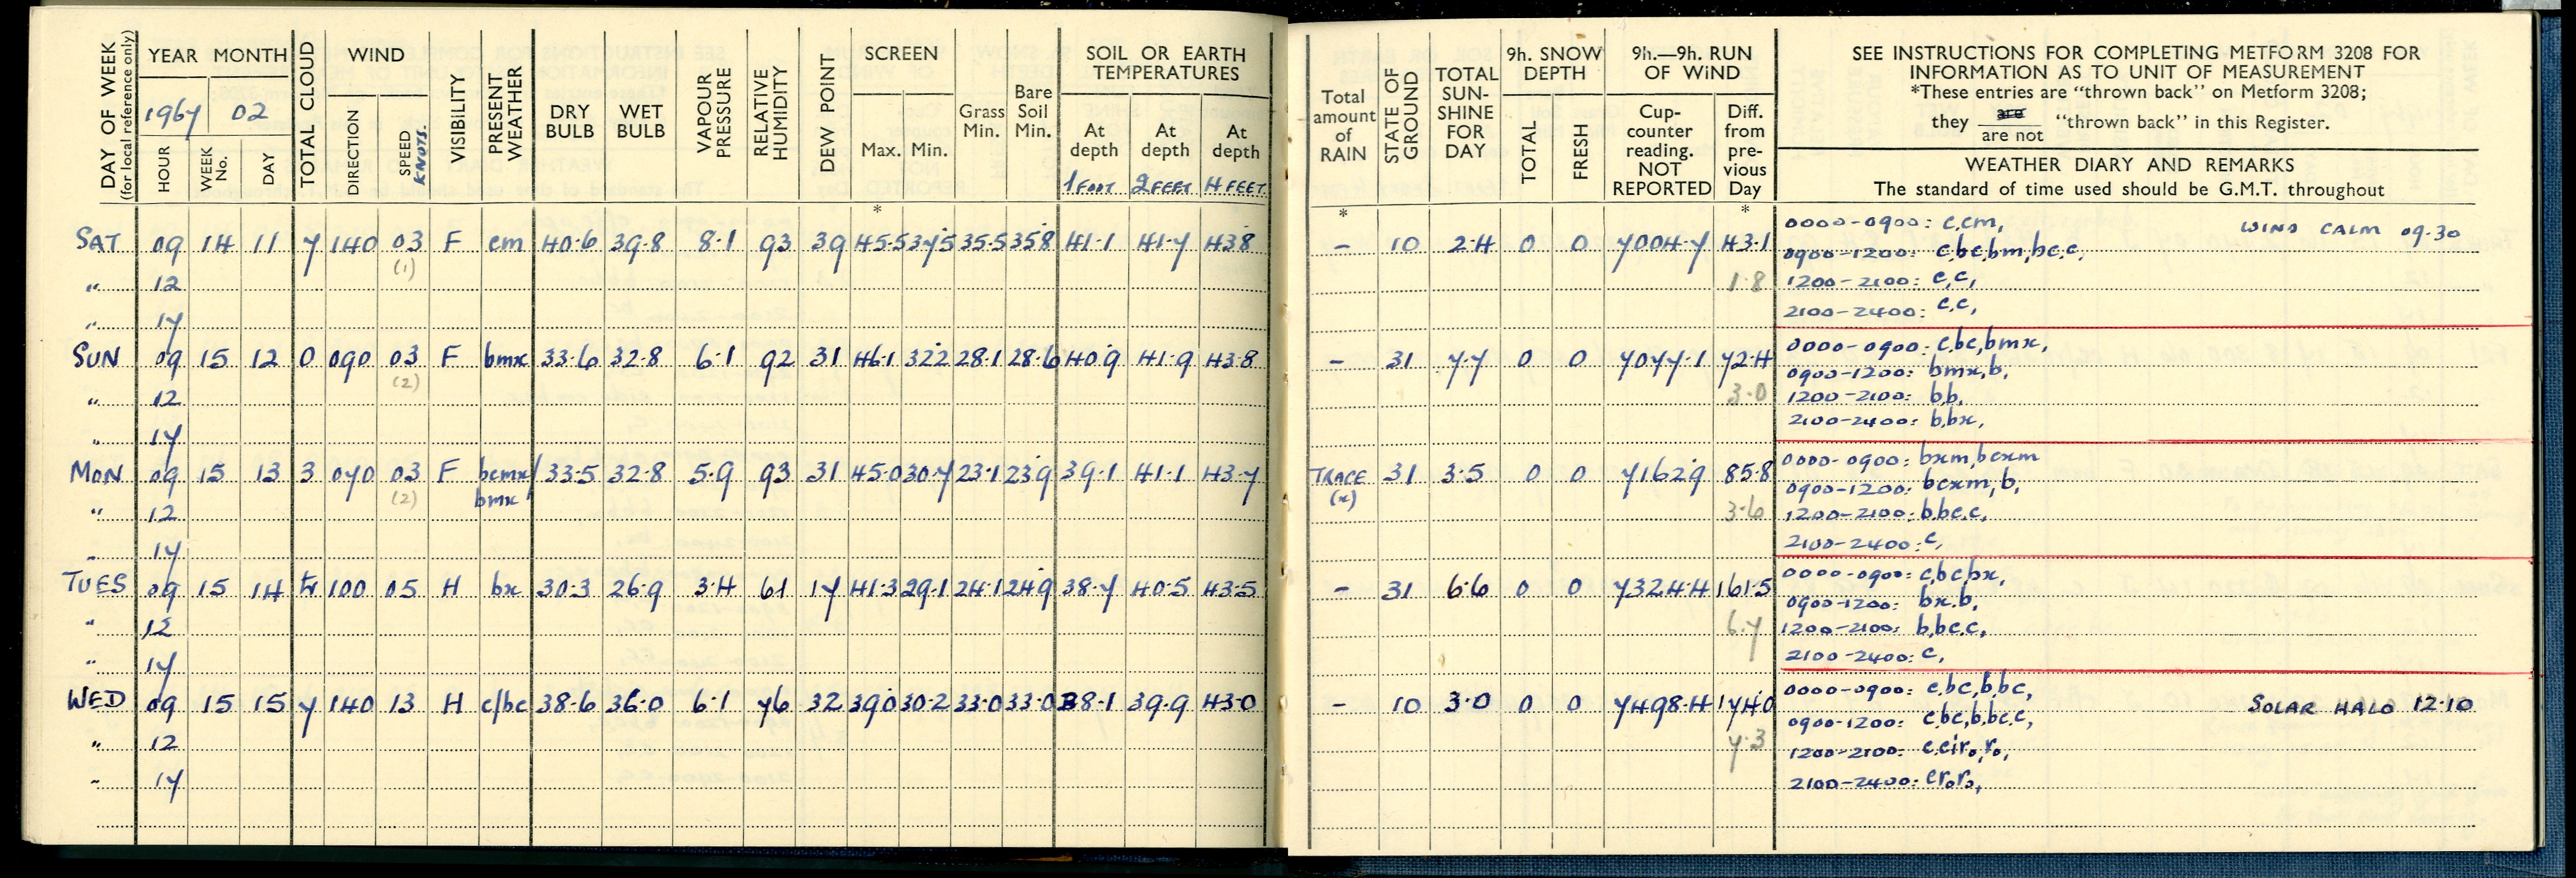 DAY OF WEEK
(for local reference only)
YEAR MONTH
1967 02
HOUR WEEK No. DAY
TOTAL CLOUD
WIND
DIRECTION SPEED KNOTS.
VISIBILITY
PRESENT WEATHER
DRY BULB
WET BULB
VAPOUR PRESSURE
RELATIVE HUMIDITY
DEW POINT
SCREEN
Max. Min.
Grass Min.
Bare Soil Min.
SOIL OR EARTH
TEMPERATURES
At depth 1 FOOT
At depth 2 FEET
At depth 4 FEET
*
SAT 09 14 11 7 140 03 F cm 40.6 39.8 8.1 93 39 45.5 37.5 35.5 35.8 41.1 41.7 43.8
(1)
" 12
" 17
SUN 09 15 12 0 090 03 F bmx 33.6 32.8 6.1 92 31 46.1 32.2 28.1 28.6 40.9 41.9 43.8
(2)
" 12
" 17
MON 09 15 13 3 070 03 F bcmx/ 33.5 32.8 5.9 93 31 45.0 30.7 23.1 23.9 39.1 41.1 43.7
(2) bmx
" 12
" 17
TUES 09 15 14 100 05 H bx 30.3 26.9 3.4 61 17 41.3 29.1 24.1 24.9 38.7 40.5 43.5
" 12
" 17
WED 09 15 15 7 140 13 H c/bc 38.6 36.0 6.1 76 32 39.0 30.2 33.0 33.0 38.1 39.9 43.0
" 12
" 17
Total amount of RAIN
STATE OF GROUND
TOTAL SUN-SHINE FOR DAY
9h. SNOW DEPTH
TOTAL FRESH
9h.—9h. RUN OF WIND
Cup-counter reading. NOT REPORTED
Diff. from pre-vious Day
SEE INSTRUCTIONS FOR COMPLETING METFORM 3208 FOR
INFORMATION AS TO UNIT OF MEASUREMENT
*These entries are "thrown back" on Metform 3208;
they are / are not "thrown back" in this Register.
WEATHER DIARY AND REMARKS
The standard of time used should be G.M.T. throughout
* *
0000-0900: c,cm, WIND CALM 09.30
- 10 2.4 0 0 7004.7 43.1
0900-1200: c,bc,bm,bc,c,
1.8 1200-2100: c,c,
2100-2400: c,c,
0000-0900: c,bc,bmx,
- 31 7.7 0 0 7077.1 72.4
0900-1200: bmx,b,
3.0 1200-2100: b,b,
2100-2400: b,bx,
0000-0900: bxm,bcxm
TRACE 31 3.5 0 0 7162.9 85.8
(x) 0900-1200: bcxm,b,
3.6 1200-2100: b,bc,c,
2100-2400: c,
0000-0900: c,bc,bx,
- 31 6.6 0 0 7324.4 161.5
0900-1200: bx,b,
6.7 1200-2100: b,bc,c,
2100-2400: c,
0000-0900: c,bc,b,bc,
- 10 3.0 0 0 7498.4 174.0 SOLAR HALO 12.10
0900-1200: c,bc,b,bc,c,
7.3 1200-2100: c,cir₀,r₀,
2100-2400: cr₀r₀,